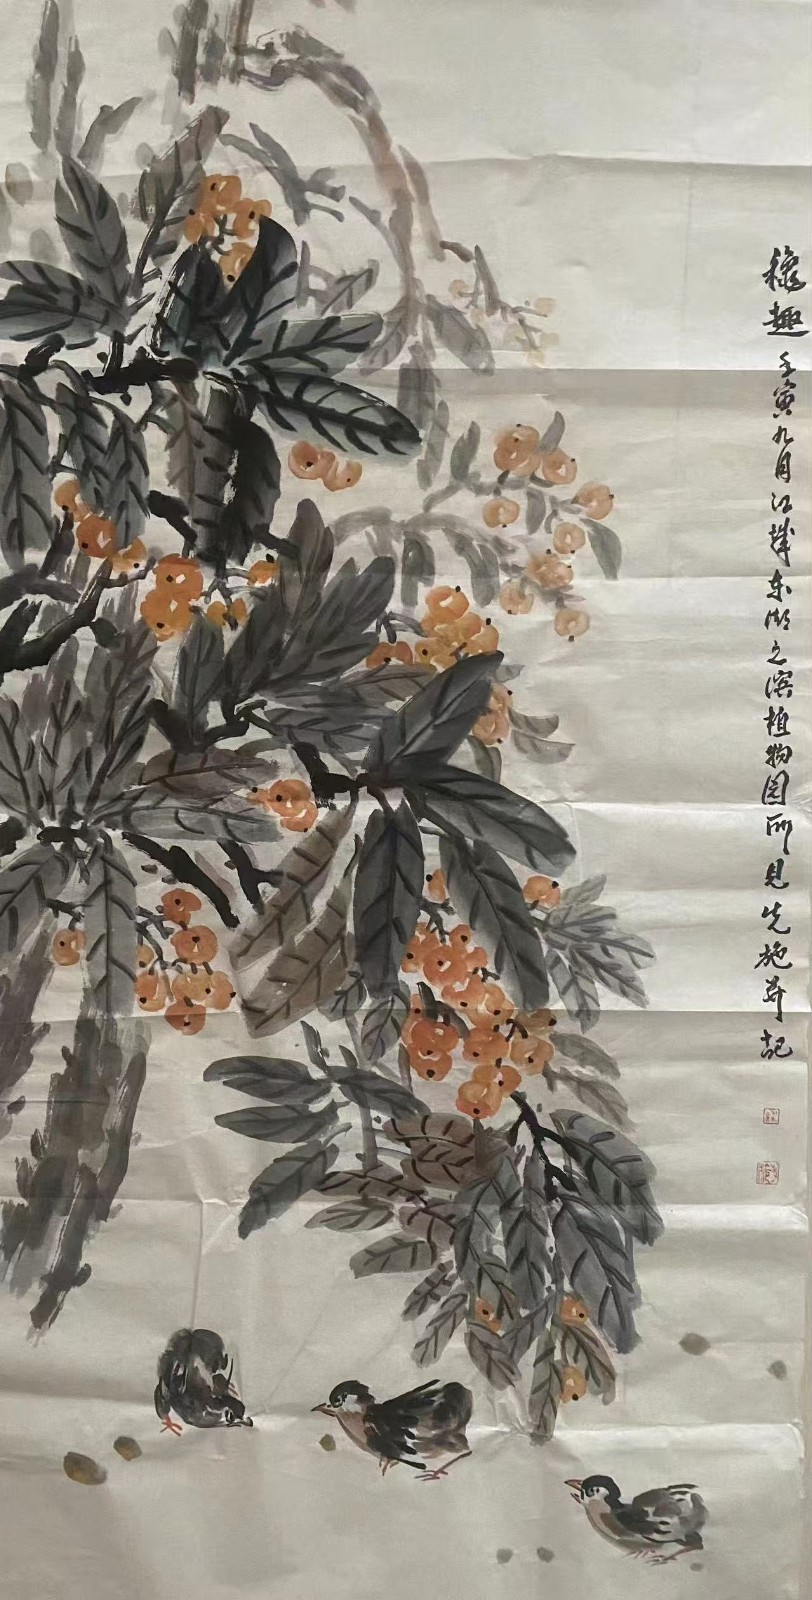 穠趣 壬寅九月江城东湖之滨植物园所见 先施并记